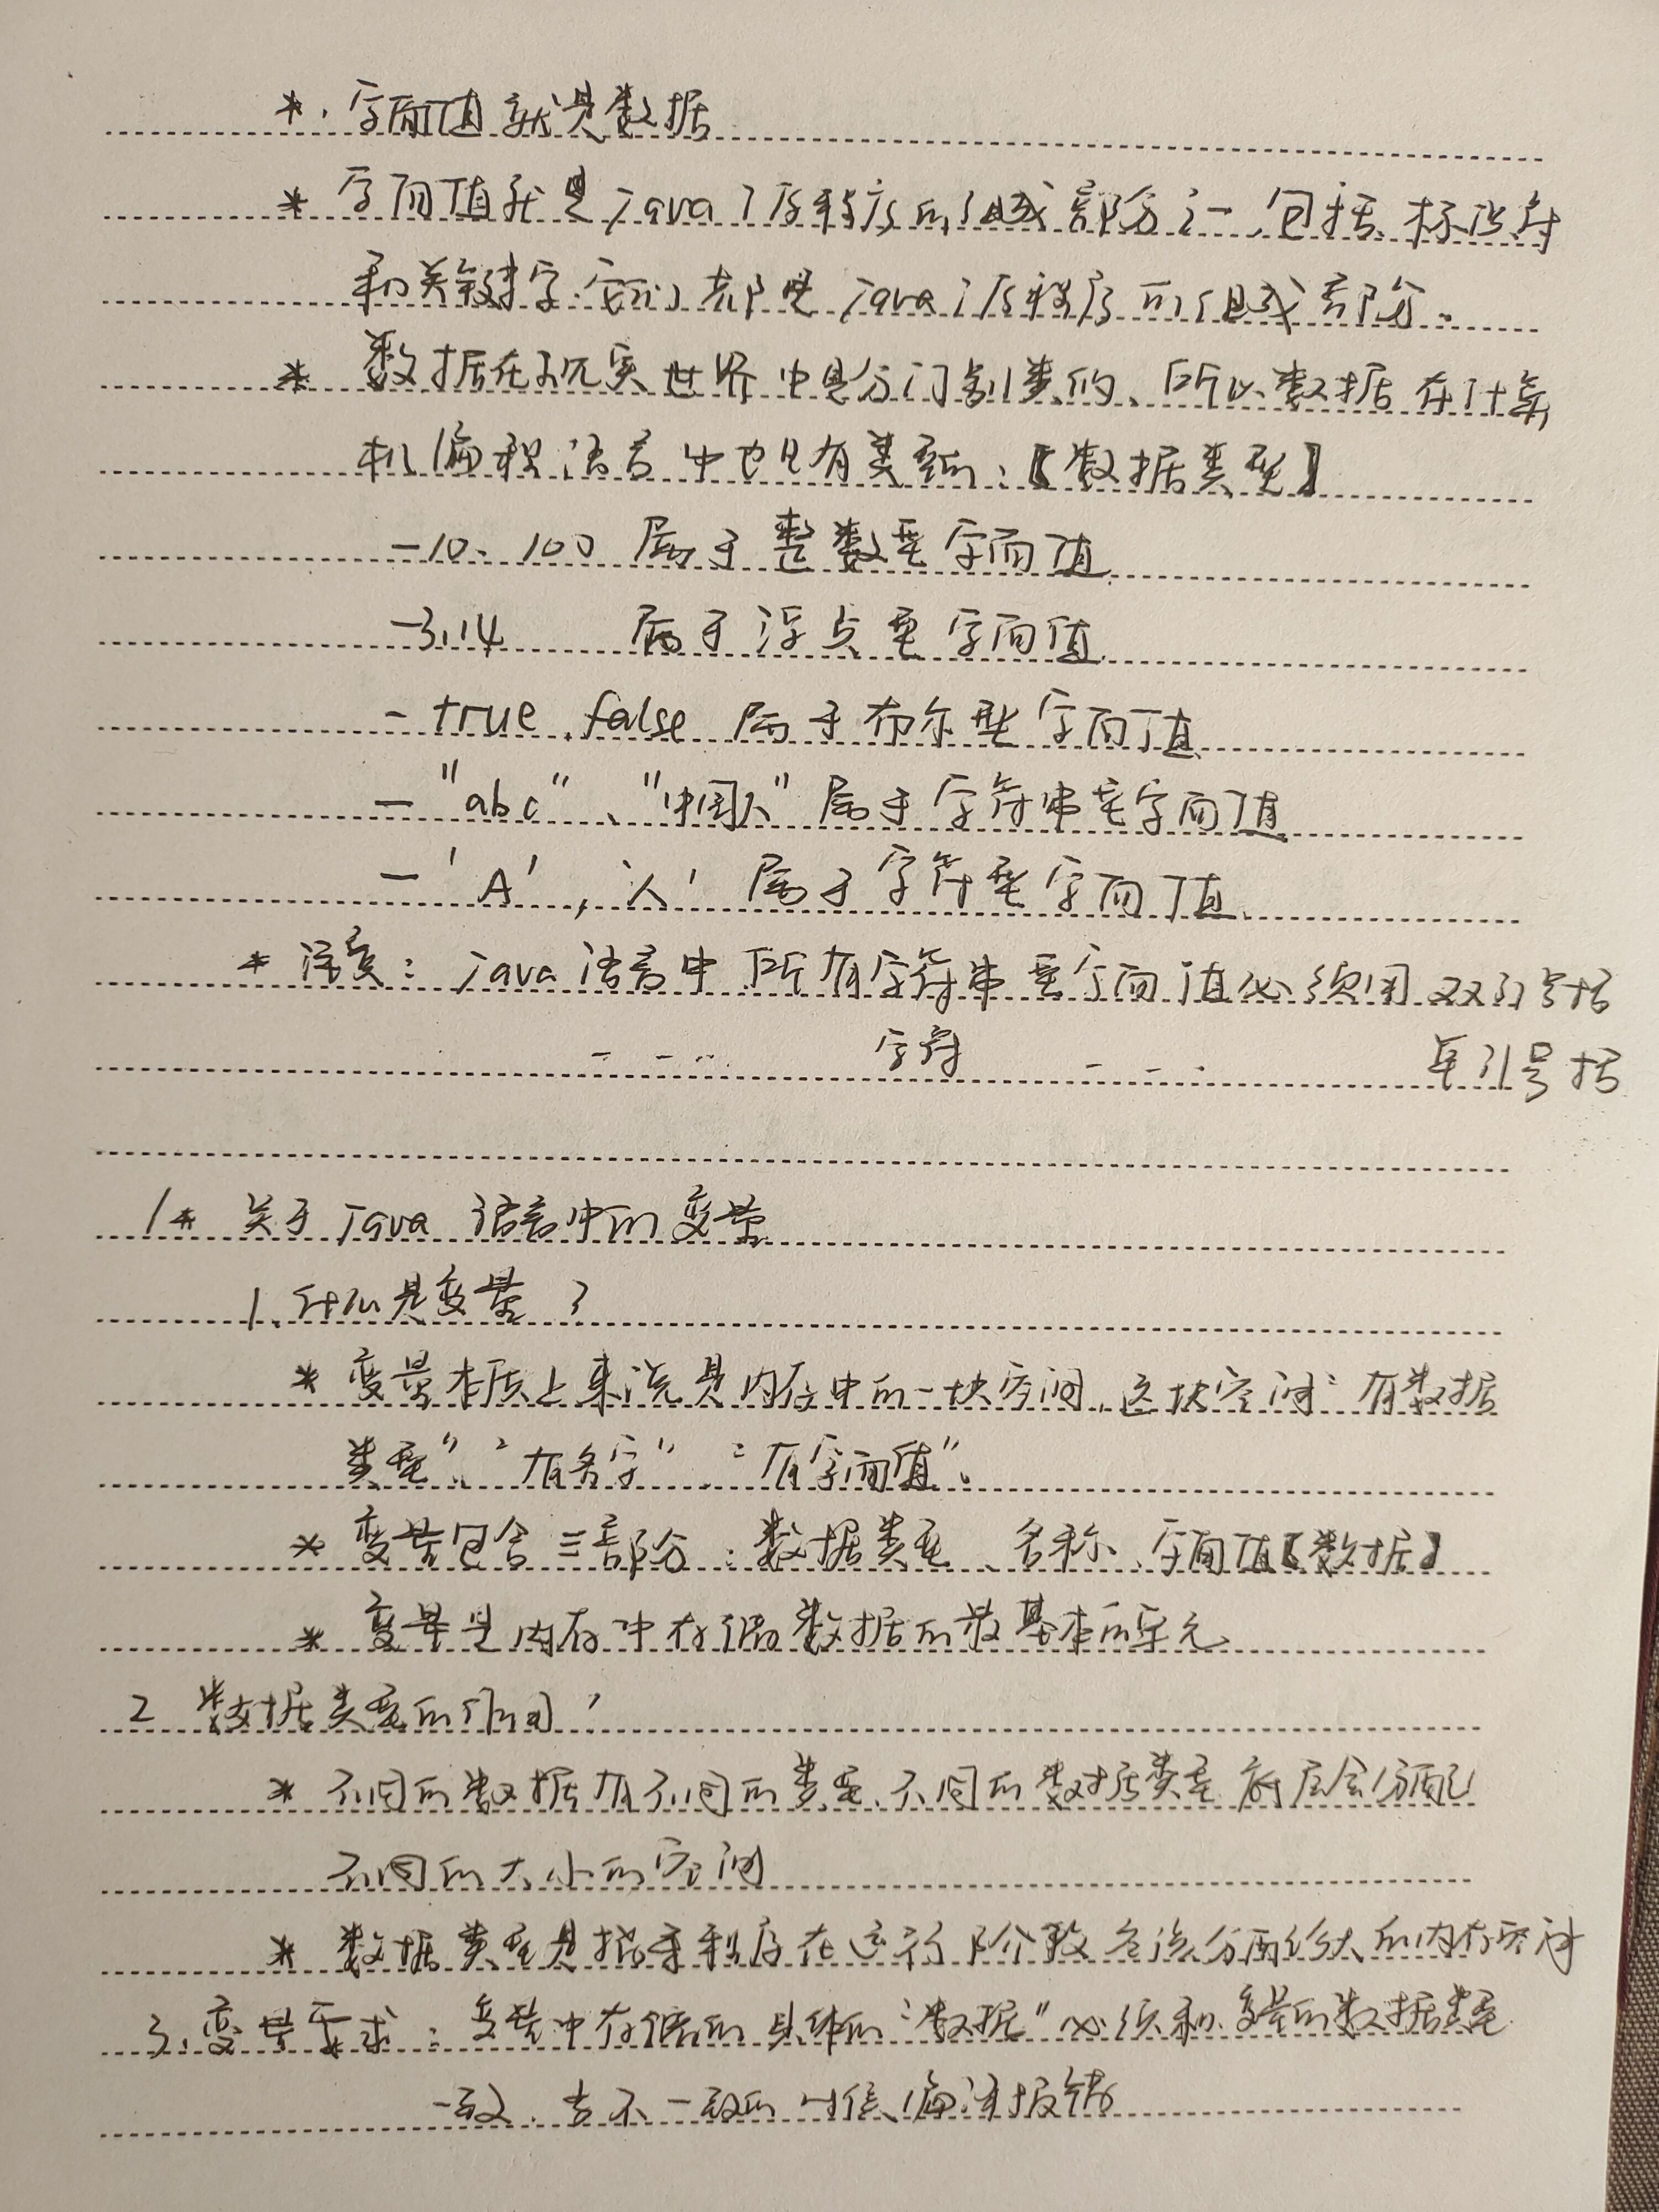 *. 字面值就是数据
* 字面值就是java源程序的组成部分之一.包括标识符
和关键字.它们都是java源程序的组成部分.
* 数据在现实世界中是分门别类的、所以数据在计算
机编程语言中也是有类型的:【数据类型】
-10、100 属于整数型字面值
-3.14 属于浮点型字面值
- true、false 属于布尔型字面值
- "abc"、"中国人" 属于字符串型字面值
- 'A', '人' 属于字符型字面值
* 注意: java语言中所有字符串型字面值必须用双引号括
- - - - 字符 - - - 单引号括
1* 关于java 语言中的变量
1. 什么是变量?
* 变量本质上来说是内存中的一块空间,这块空间"有数据
类型"、"有名字"、"有字面值"。
* 变量包含三部分:数据类型、名称、字面值【数据】
* 变量是内存中存储数据的最基本的单元
2 数据类型的作用'
* 不同的数据有不同的类型、不同的数据类型底层会分配
不同的大小的空间
* 数据类型是指导程序在运行阶段 该分配多大的内存空间
3、变量要求:变量中存储的具体的"数据"必须和变量的数据类型
一致、当不一致的时候编译报错